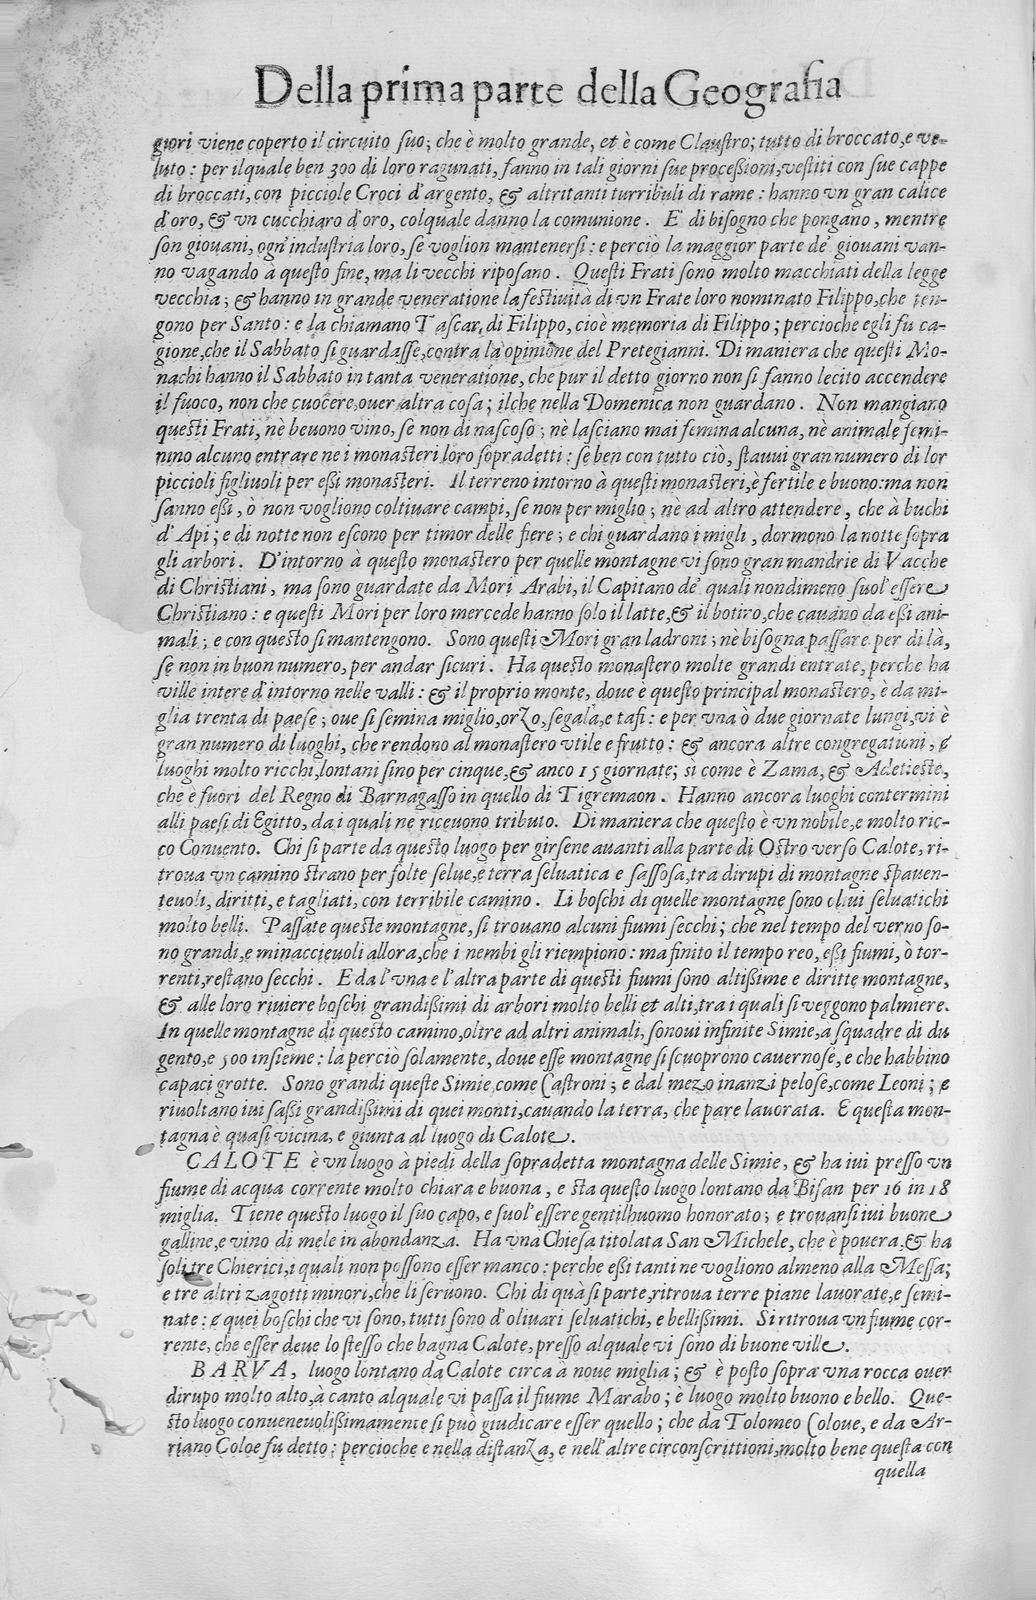 Della prima parte della Geografia
giori viene coperto il circuito suo; che è molto grande, et è come Claustro; tutto di broccato, e ve-
luto: per ilquale ben 300 di loro ragunati, fanno in tali giorni sue processioni, vestiti con sue cappe
di broccati, con picciole Croci d'argento, & altritanti turribuli di rame: hanno vn gran calice
d'oro, & vn cucchiaro d'oro, colquale danno la comunione. E' di bisogno che pongano, mentre
son giouani, ogn'industria loro, se voglion mantenersi: e perciò la maggior parte de' giouani van-
no vagando à questo fine, ma li vecchi riposano. Questi Frati sono molto macchiati della legge
vecchia; & hanno in grande veneratione la festiuità di vn Frate loro nominato Filippo, che ten-
gono per Santo: e la chiamano Tascar, di Filippo, cioè memoria di Filippo; percioche egli fu ca-
gione, che il Sabbato si guardasse, contra la opinione del Pretegianni. Di maniera che questi Mo-
nachi hanno il Sabbato in tanta veneratione, che pur il detto giorno non si fanno lecito accendere
il fuoco, non che cuocere, ouer altra cosa; ilche nella Domenica non guardano. Non mangiano
questi Frati, nè beuono vino, se non di nascoso; nè lasciano mai femina alcuna, nè animale femi-
nino alcuno entrare ne i monasteri loro sopradetti: se ben con tutto ciò, stauui gran numero di lor
piccioli figliuoli per essi monasteri. Il terreno intorno à questi monasteri, è fertile e buono: ma non
sanno essi, ò non vogliono coltiuare campi, se non per miglio; nè ad altro attendere, che à buchi
d'Api; e di notte non escono per timor delle fiere; e chi guardano i migli, dormono la notte sopra
gli arbori. D'intorno à questo monastero per quelle montagne vi sono gran mandrie di Vacche
di Christiani, ma sono guardate da Mori Arabi, il Capitano de' quali nondimeno suol'essere
Christiano: e questi Mori per loro mercede hanno solo il latte, & il botiro, che cauano da essi ani-
mali; e con questo si mantengono. Sono questi Mori gran ladroni; nè bisogna passare per di là,
se non in buon numero, per andar sicuri. Ha questo monastero molte grandi entrate, perche ha
ville intere d'intorno nelle valli: & il proprio monte, doue è questo principal monastero, è da mi-
glia trenta di paese; oue si semina miglio, orzo, segala, e tafi: e per vna ò due giornate lungi, vi è
gran numero di luoghi, che rendono al monastero vtile e frutto: & ancora altre congregationi, e
luoghi molto ricchi, lontani sino per cinque, & anco 15 giornate; sì come è Zama, & Adetieste,
che è fuori del Regno di Barnagasso in quello di Tigremaon. Hanno ancora luoghi contermini
alli paesi di Egitto, da i quali ne riceuono tributo. Di maniera che questo è vn nobile, e molto ric-
co Conuento. Chi si parte da questo luogo per girsene auanti alla parte di Ostro verso Calote, ri-
troua vn camino strano per folte selue, e terra seluatica e sassosa, tra dirupi di montagne spauen-
teuoli, diritti, e tagliati, con terribile camino. Li boschi di quelle montagne sono oliui seluatichi
molto belli. Passate queste montagne, si trouano alcuni fiumi secchi; che nel tempo del verno so-
no grandi, e minaccieuoli allora, che i nembi gli riempiono: ma finito il tempo reo, essi fiumi, ò tor-
renti, restano secchi. E da l'vna e l'altra parte di questi fiumi sono altissime e diritte montagne,
& alle loro riuiere boschi grandissimi di arbori molto belli et alti, tra i quali si veggono palmiere.
In quelle montagne di questo camino, oltre ad altri animali, sonoui infinite Simie, a squadre di du
gento, e 500 insieme: là perciò solamente, doue esse montagne si scuoprono cauernose, e che habbino
capaci grotte. Sono grandi queste Simie come Castroni; e dal mezo inanzi pelose, come Leoni; e
riuoltano iui sassi grandissimi di quei monti, cauando la terra, che pare lauorata. E questa mon-
tagna è quasi vicina, e giunta al luogo di Calote.
CALOTE è vn luogo à piedi della sopradetta montagna delle Simie, & ha iui presso vn
fiume di acqua corrente molto chiara e buona, e sta questo luogo lontano da Bisan per 16 in 18
miglia. Tiene questo luogo il suo capo, e suol'essere gentilhuomo honorato; e trouansi iui buone
galline, e vino di mele in abondanza. Ha vna Chiesa titolata San Michele, che è pouera, & ha
soli tre Chierici, i quali non possono esser manco: perche essi tanti ne vogliono almeno alla Messa;
e tre altri zagotti minori, che li seruono. Chi di quà si parte, ritroua terre piane lauorate, e semi-
nate: e quei boschi che vi sono, tutti sono d'oliuari seluatichi, e bellissimi. Si ritroua vn fiume cor-
rente, che esser deue lo stesso che bagna Calote, presso alquale vi sono di buone ville.
BARVA, luogo lontano da Calote circa à noue miglia; & è posto sopra vna rocca ouer
dirupo molto alto, à canto alquale vi passa il fiume Marabo; è luogo molto buono e bello. Que-
sto luogo conueneuolissimamente si può giudicare esser quello; che da Tolomeo Coloue, e da Ar-
riano Coloe fu detto: percioche e nella distanza, e nell'altre circonscrittioni, molto bene questa con
quella